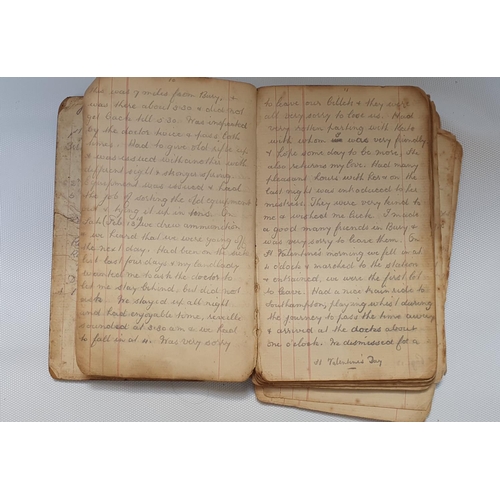 10
was 7 miles from Bury, &
was there about 5-30 & did not
get back till 8.30. Was inspected
by the doctor twice & pass both
times. Had to give old rifle up
& was issued with another with
different sight & stronger spring.
Equipment was reduced & had
the job of sorting the old equipment
& tying it up in tens. On
drew ammunition
& we heard that we were going off
the next day. Had been on the sick
list last four days & my landlady
wanted me to ask the doctor to
let me stay behind, but did not
ask. We stayed up all night
and had enjoyable time, reveille
sounded at 3.30 am & we had
to fall in at 4. Was very sorry
11
to leave our billets & they also
all very sorry to lose us. Had
very rotten parting with Kate
with whom was very friendly
& hope some day to be more. She
also returns my love. Had many
pleasant hours with her & on the
last night was introduced to her
mistress. They were very kind to
me & wished me luck. I made
a good many friends in Bury &
was very sorry to leave them. On
St Valentine's morning we fell in at
4 o'clock & marched to the station
& entrained, we were the first lot
to leave. Had a nice train ride to
Southampton, playing whist during
the journey to pass the time away
& arrived at the docks about
one o'clock. We dismissed for a
St Valentine's Day